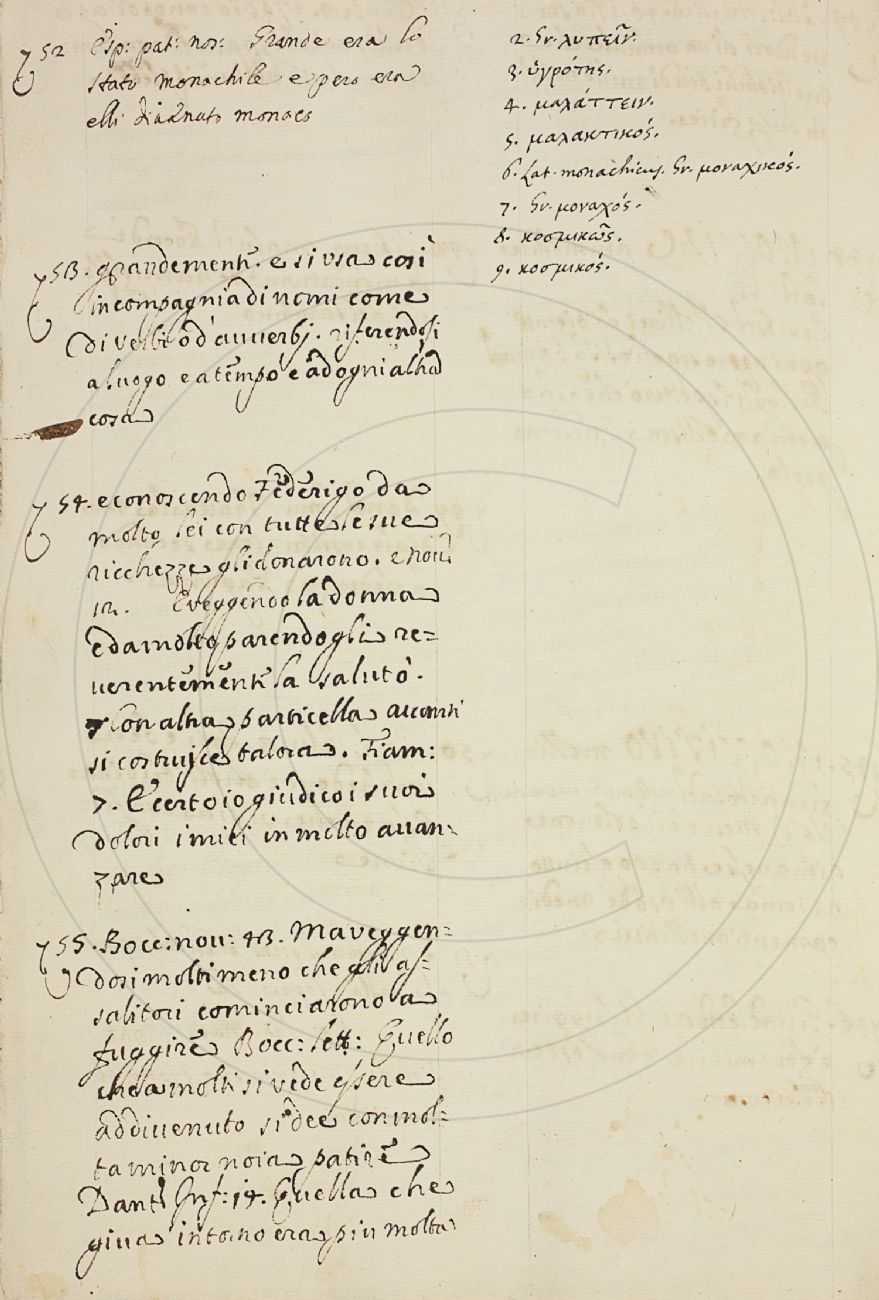 752 Esp: pat: nos: Grande era lo
stato monachile e pero era
elli diuenuto monaco
753. grandemente. e si usa così
in compagnia di nomi come
di verbi o d'auuerbj. riferendosi
a luogo e a tempo e ad ogni altra
cosa
754. e conoscendo Federigo da
molto lei con tutte le sue
ricchezze gli donarono. e nou:
12. E veggendo la donna
e da molto parendogli re=
uerentemente la salutò.
Con altra particella auanti
si costruisce talora. Fiam:
7. E certo io giudico i suoi
dolori i miei in molto auan=
zare
755. Bocc: nou: 43. Ma veggen=
dosi molti meno che gli as=
salitori cominciarono a
fuggire Bocc: lett: Quello
che a molti si vede essere
addiuenuto si dee con mol=
ta minor noia patire
Dante Inf: 14. Quella che
giua intorno era piu molta
2. Gr. λυπεῖν.
3. ὑγρότης.
4. μαλάττειν.
5. μαλακτικός.
6. Lat. monachicus. Gr. μοναχικός.
7. Gr. μοναχός.
8. κοσμικῶς.
9. κοσμικός.